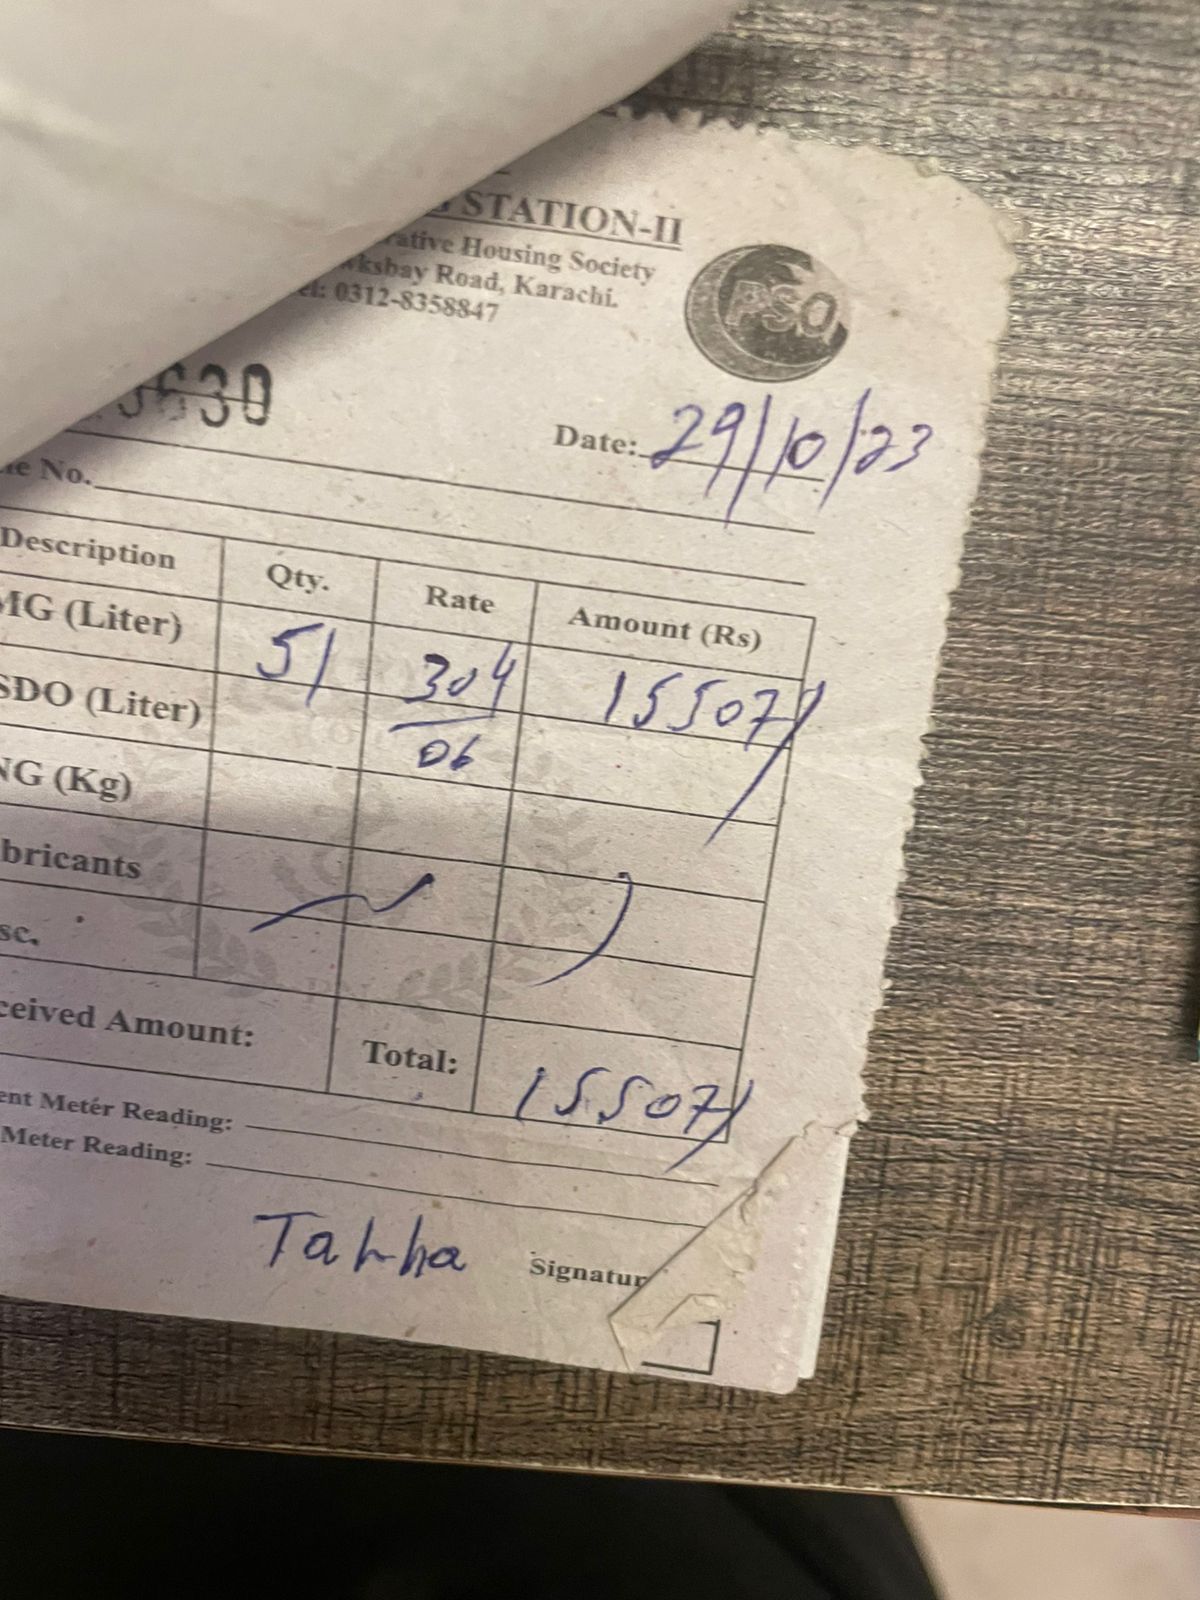 STATION-II
rative Housing Society
wksbay Road, Karachi.
el: 0312-8358847
PSO
3630
Date: 29/10/23
ne No.
Description Qty. Rate Amount (Rs)
MG (Liter) 51 304/06 15507/
SDO (Liter)
NG (Kg)
bricants
sc.
ceived Amount: Total: 15507/
ent Meter Reading:
Meter Reading:
Tahha Signatur